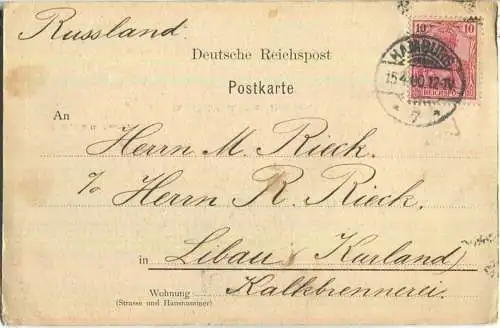 Russland.
Deutsche Reichspost
Postkarte
10 10
REICHSPOST
HAMBURG
15.4.00.12-1N.
* 7 *
An
Herrn M. Rieck.
% Herrn R. Rieck.
in Libau (Kurland)
Kalkbrennerei.
Wohnung
(Strasse und Hausnummer)